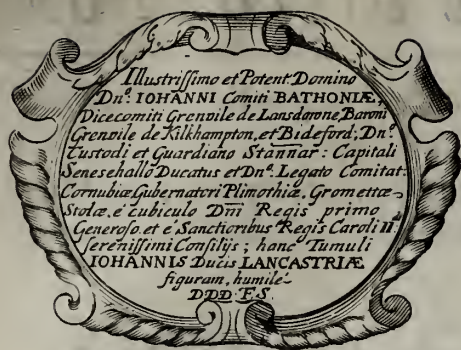 Illustrissimo et Potent. Domino
Dnº. IOHANNI Comiti BATHONIÆ,
Vicecomiti Grenvile de Lansdowne, Baroni
Grenvile de Kilkhampton, et Bideford; Dnº.
Custodi et Guardiano Stannar: Capitali
Seneschallo Ducatus et Dnº. Legato Comitat:
Cornubiæ, Gubernatori Plimothiæ, Gromettæ
Stolæ, é cubiculo Dñi Regis primo
Generoso, et é Sanctioribus Regis Caroli II.
serenissimi Consilijs; hanc Tumuli
IOHANNIS Ducis LANCASTRIÆ
figuram, humilé
DDD. F.S.